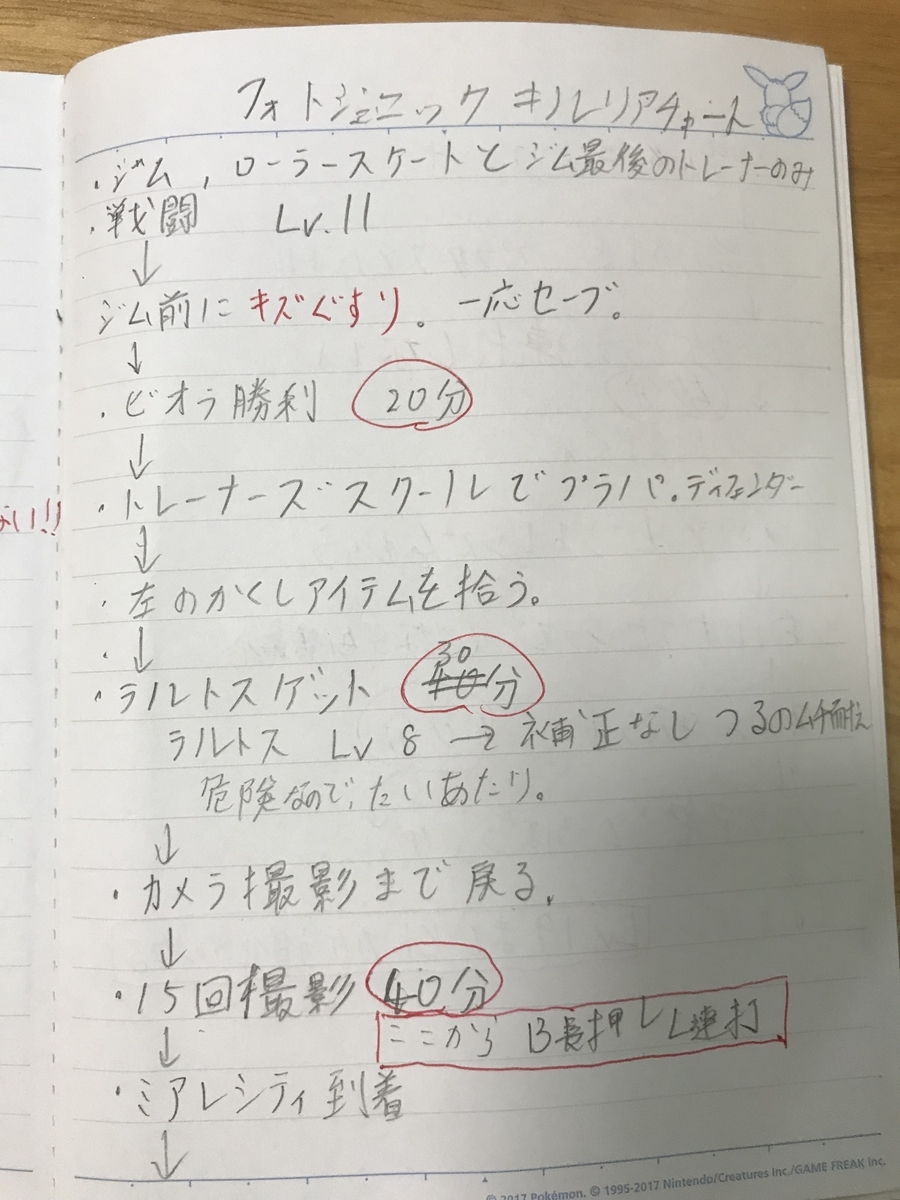 フォトジェニック キルリアチャート
・ジム, ローラースケートとジム最後のトレーナーのみ
・戦闘 Lv.11
↓
ジム前にキズぐすり。一応セーブ。
↓
・ビオラ勝利 20分
↓
・トレーナーズスクールでプラパ。ディフェンダー
↓
・左のかくしアイテムを拾う。
・↓
・ラルトスゲット 30 40分
ラルトス Lv 8 → 補正なしつるのムチ耐え
危険なので、たいあたり。
↓
・カメラ撮影まで戻る。
↓
・15回撮影 40分
↓ ここからB長押しL連打
・ミアレシティ到着
↓
い!!
© 2017 Pokémon. © 1995-2017 Nintendo/Creatures Inc./GAME FREAK inc.